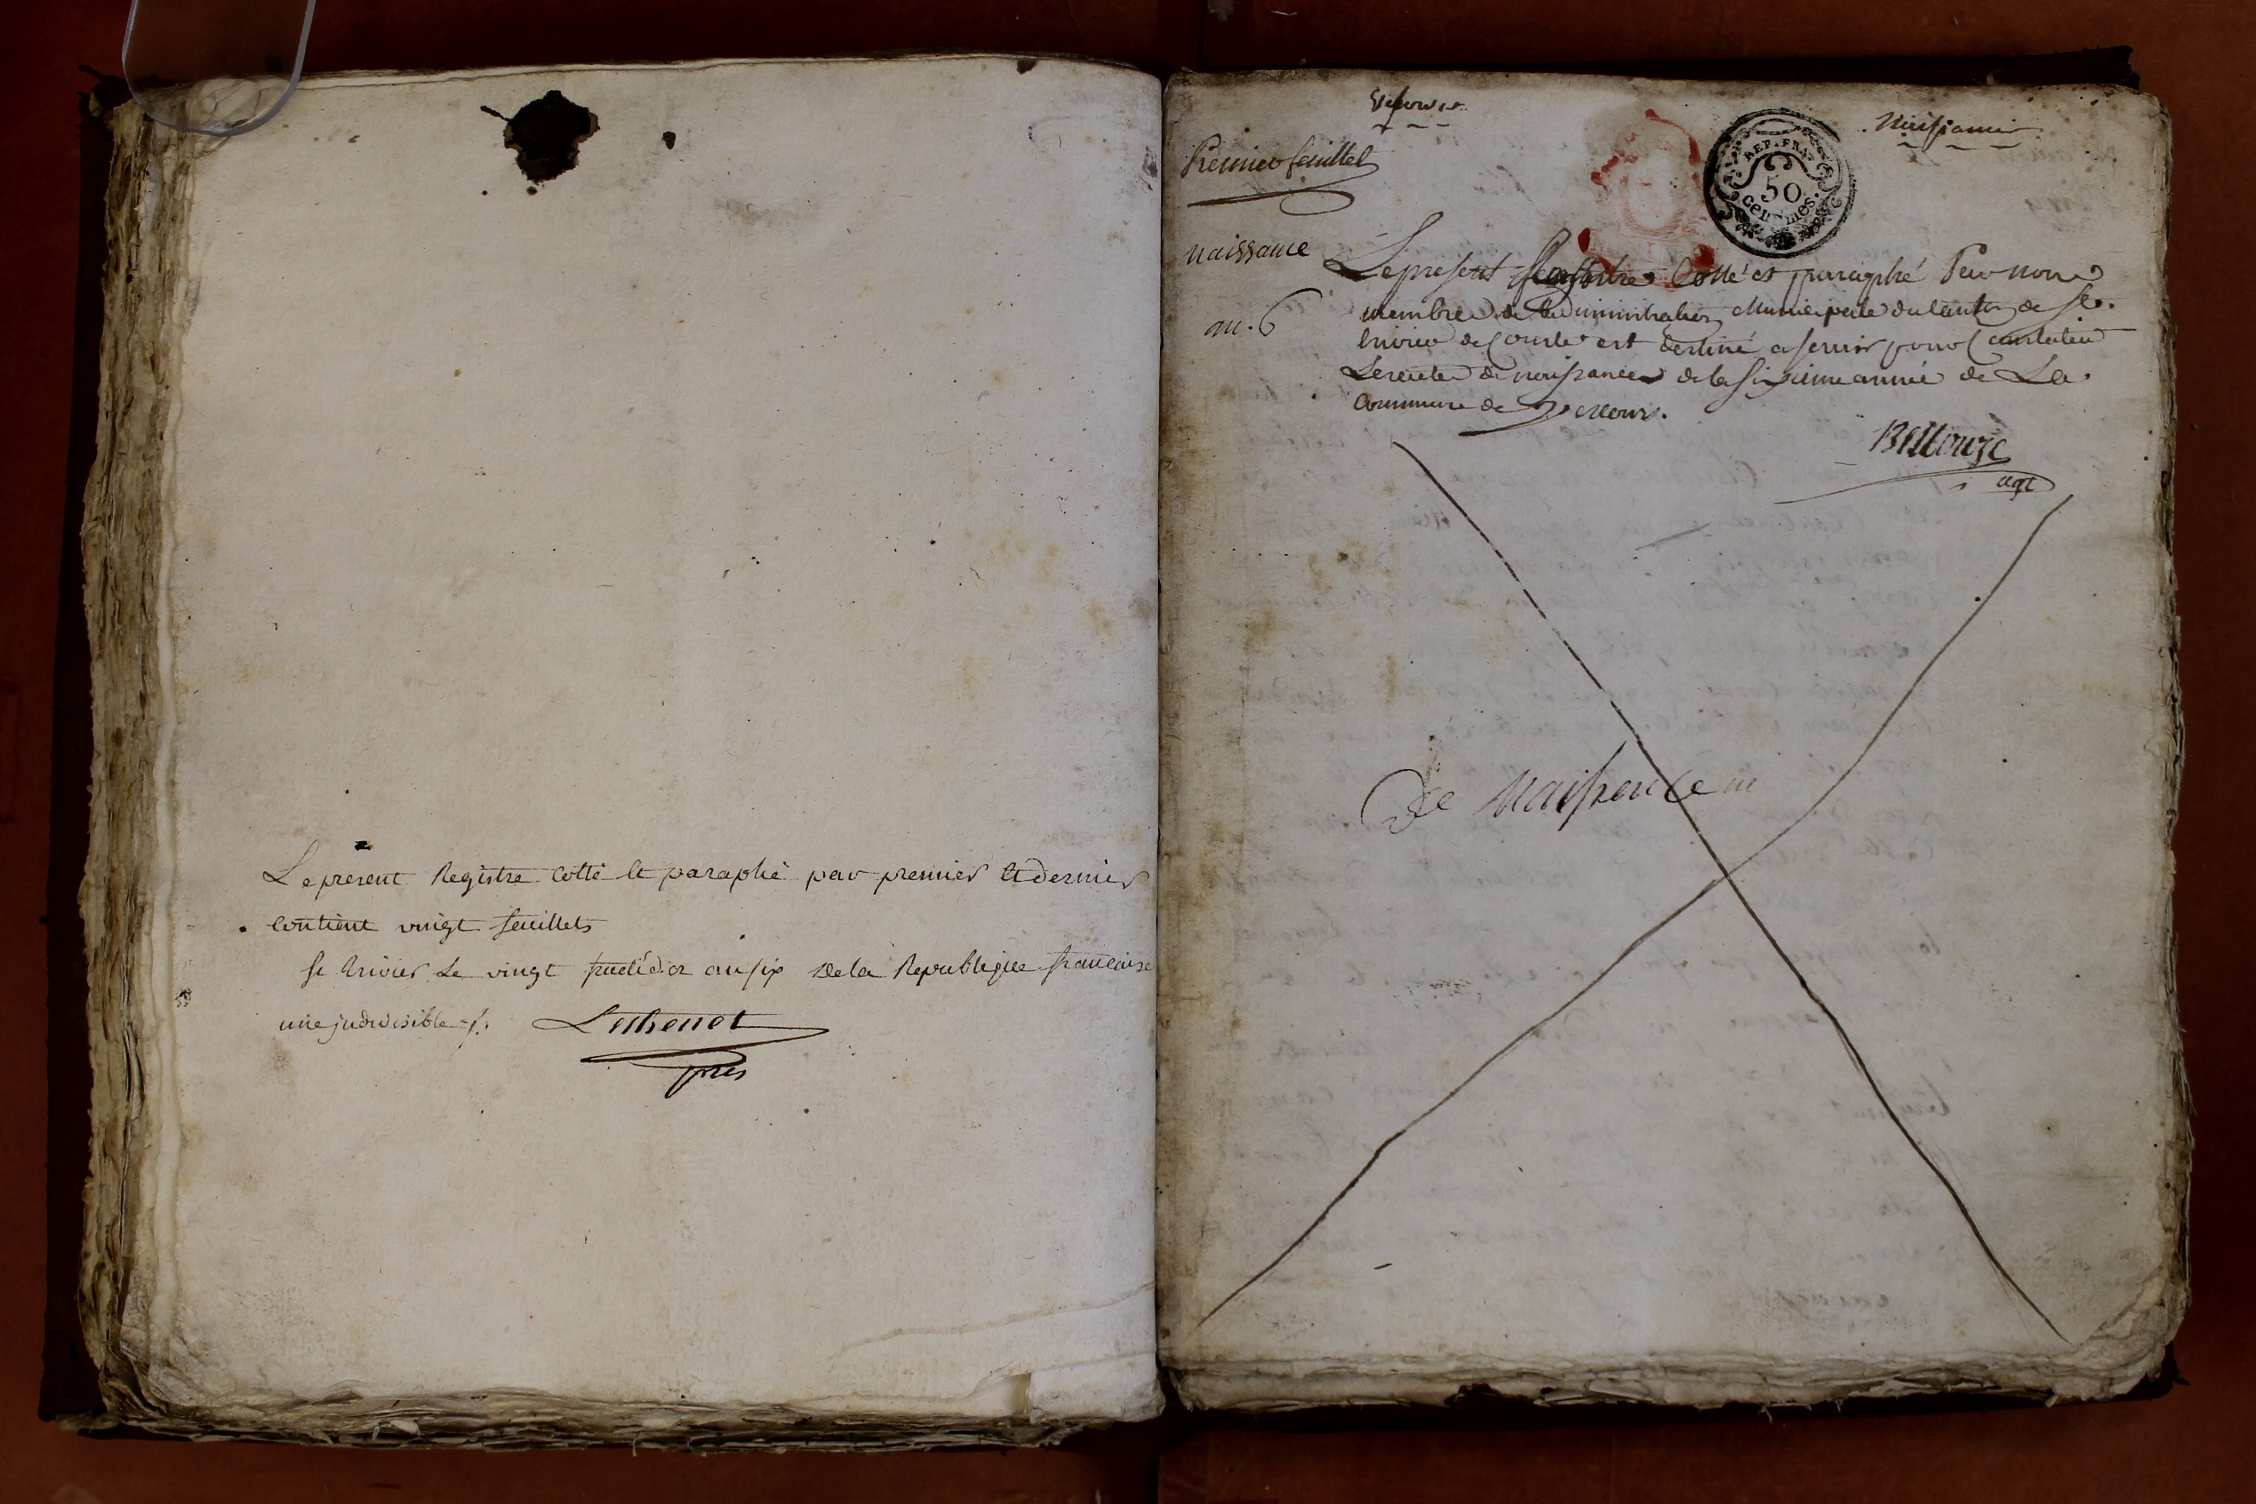 Le present Registre Cotté et paraphé par premier et dernier
contient vingt feuillets
St Trivier Le vingt fructidor an six De la Republique francaise
une indivisible
Luthenet
pres
Naissances
Premier feuillet
REP. FRA.
50
centimes.
naissance
an. 6
Le present Registre Cotté et paraphé Par nous
membre de Ladministration Municipale du Canton de St.
trivier de Courte est destiné a servir pour Constater
Les actes de naissances de la sixieme année de La.
Commune de Vescours.
Bellouze
agt
De Naissance